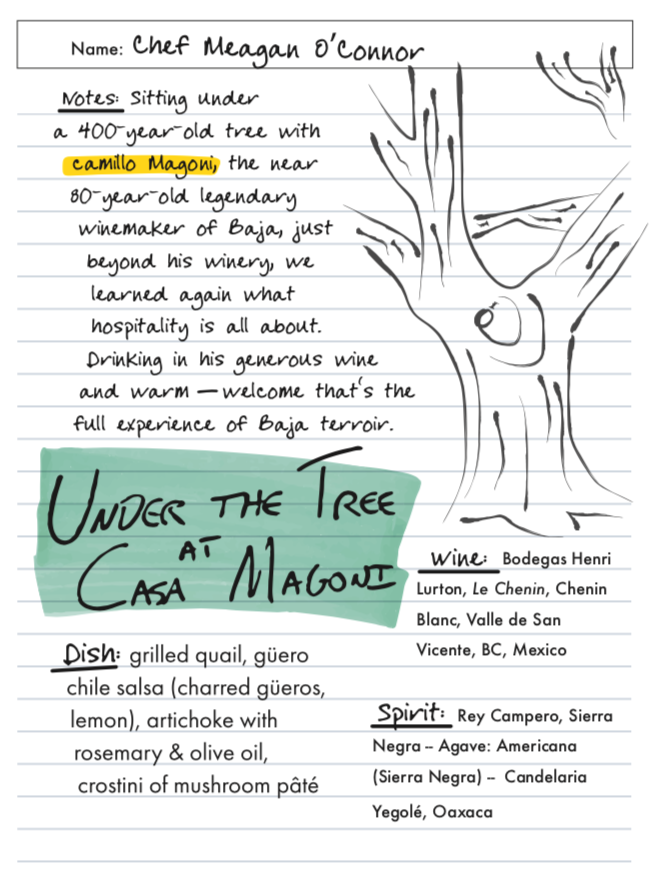 Name: Chef Meagan O'Connor
Notes: Sitting under
a 400-year-old tree with
camillo Magoni, the near
80-year-old legendary
winemaker of Baja, just
beyond his winery, we
learned again what
hospitality is all about.
Drinking in his generous wine
and warm — welcome that's the
full experience of Baja terroir.
UNDER THE TREE
AT
CASA MAGONI
Wine: Bodegas Henri
Lurton, Le Chenin, Chenin
Blanc, Valle de San
Vicente, BC, Mexico
Dish: grilled quail, güero
chile salsa (charred güeros,
lemon), artichoke with
rosemary & olive oil,
crostini of mushroom pâté
Spirit: Rey Campero, Sierra
Negra – Agave: Americana
(Sierra Negra) – Candelaria
Yegolé, Oaxaca